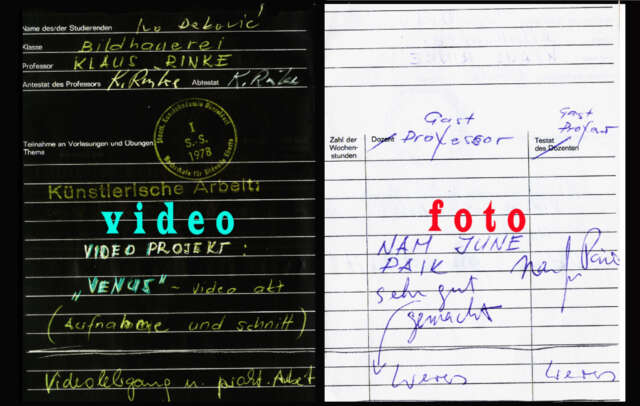 Name des/der Studierenden Ivo Deković
Klasse Bildhauerei
Professor KLAUS RINKE
Antestat des Professors K. Rinke Abtestat K. Rinke
I
S.S.
1978
Teilnahme an Vorlesungen und Übungen
Thema
Künstlerische Arbeit:
video
VIDEO PROJEKT:
„VENUS" – video akt
(Aufnahme und schnitt)
Videolehgang u. prakt. Arbeit
Zahl der
Wochen-
stunden
Gast
Dozent Professor
Gast
Testat
des Dozenten
foto
NAM JUNE
PAIK
sehr gut
gemacht